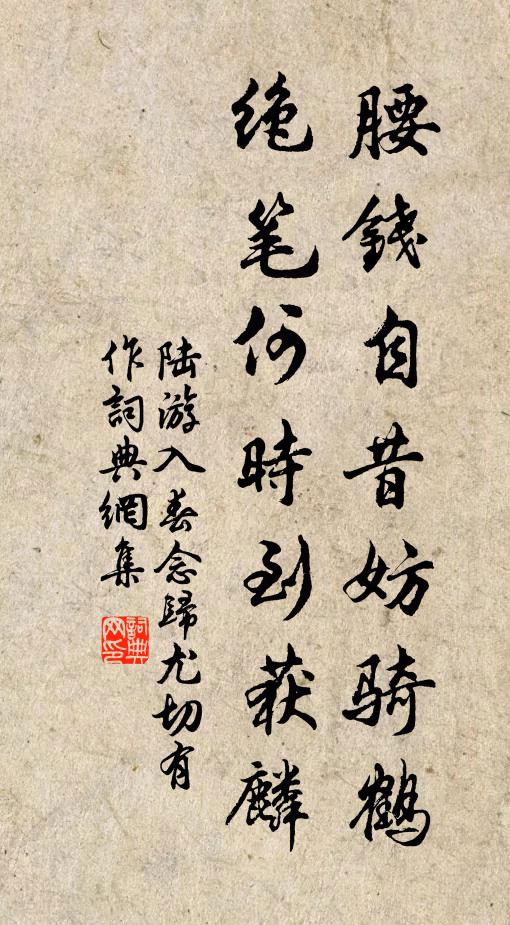 腰錢自昔妨骑鶴
绝笔何時到获麟
陆游入春念歸尤切有
作詞典網集
詞典
网印